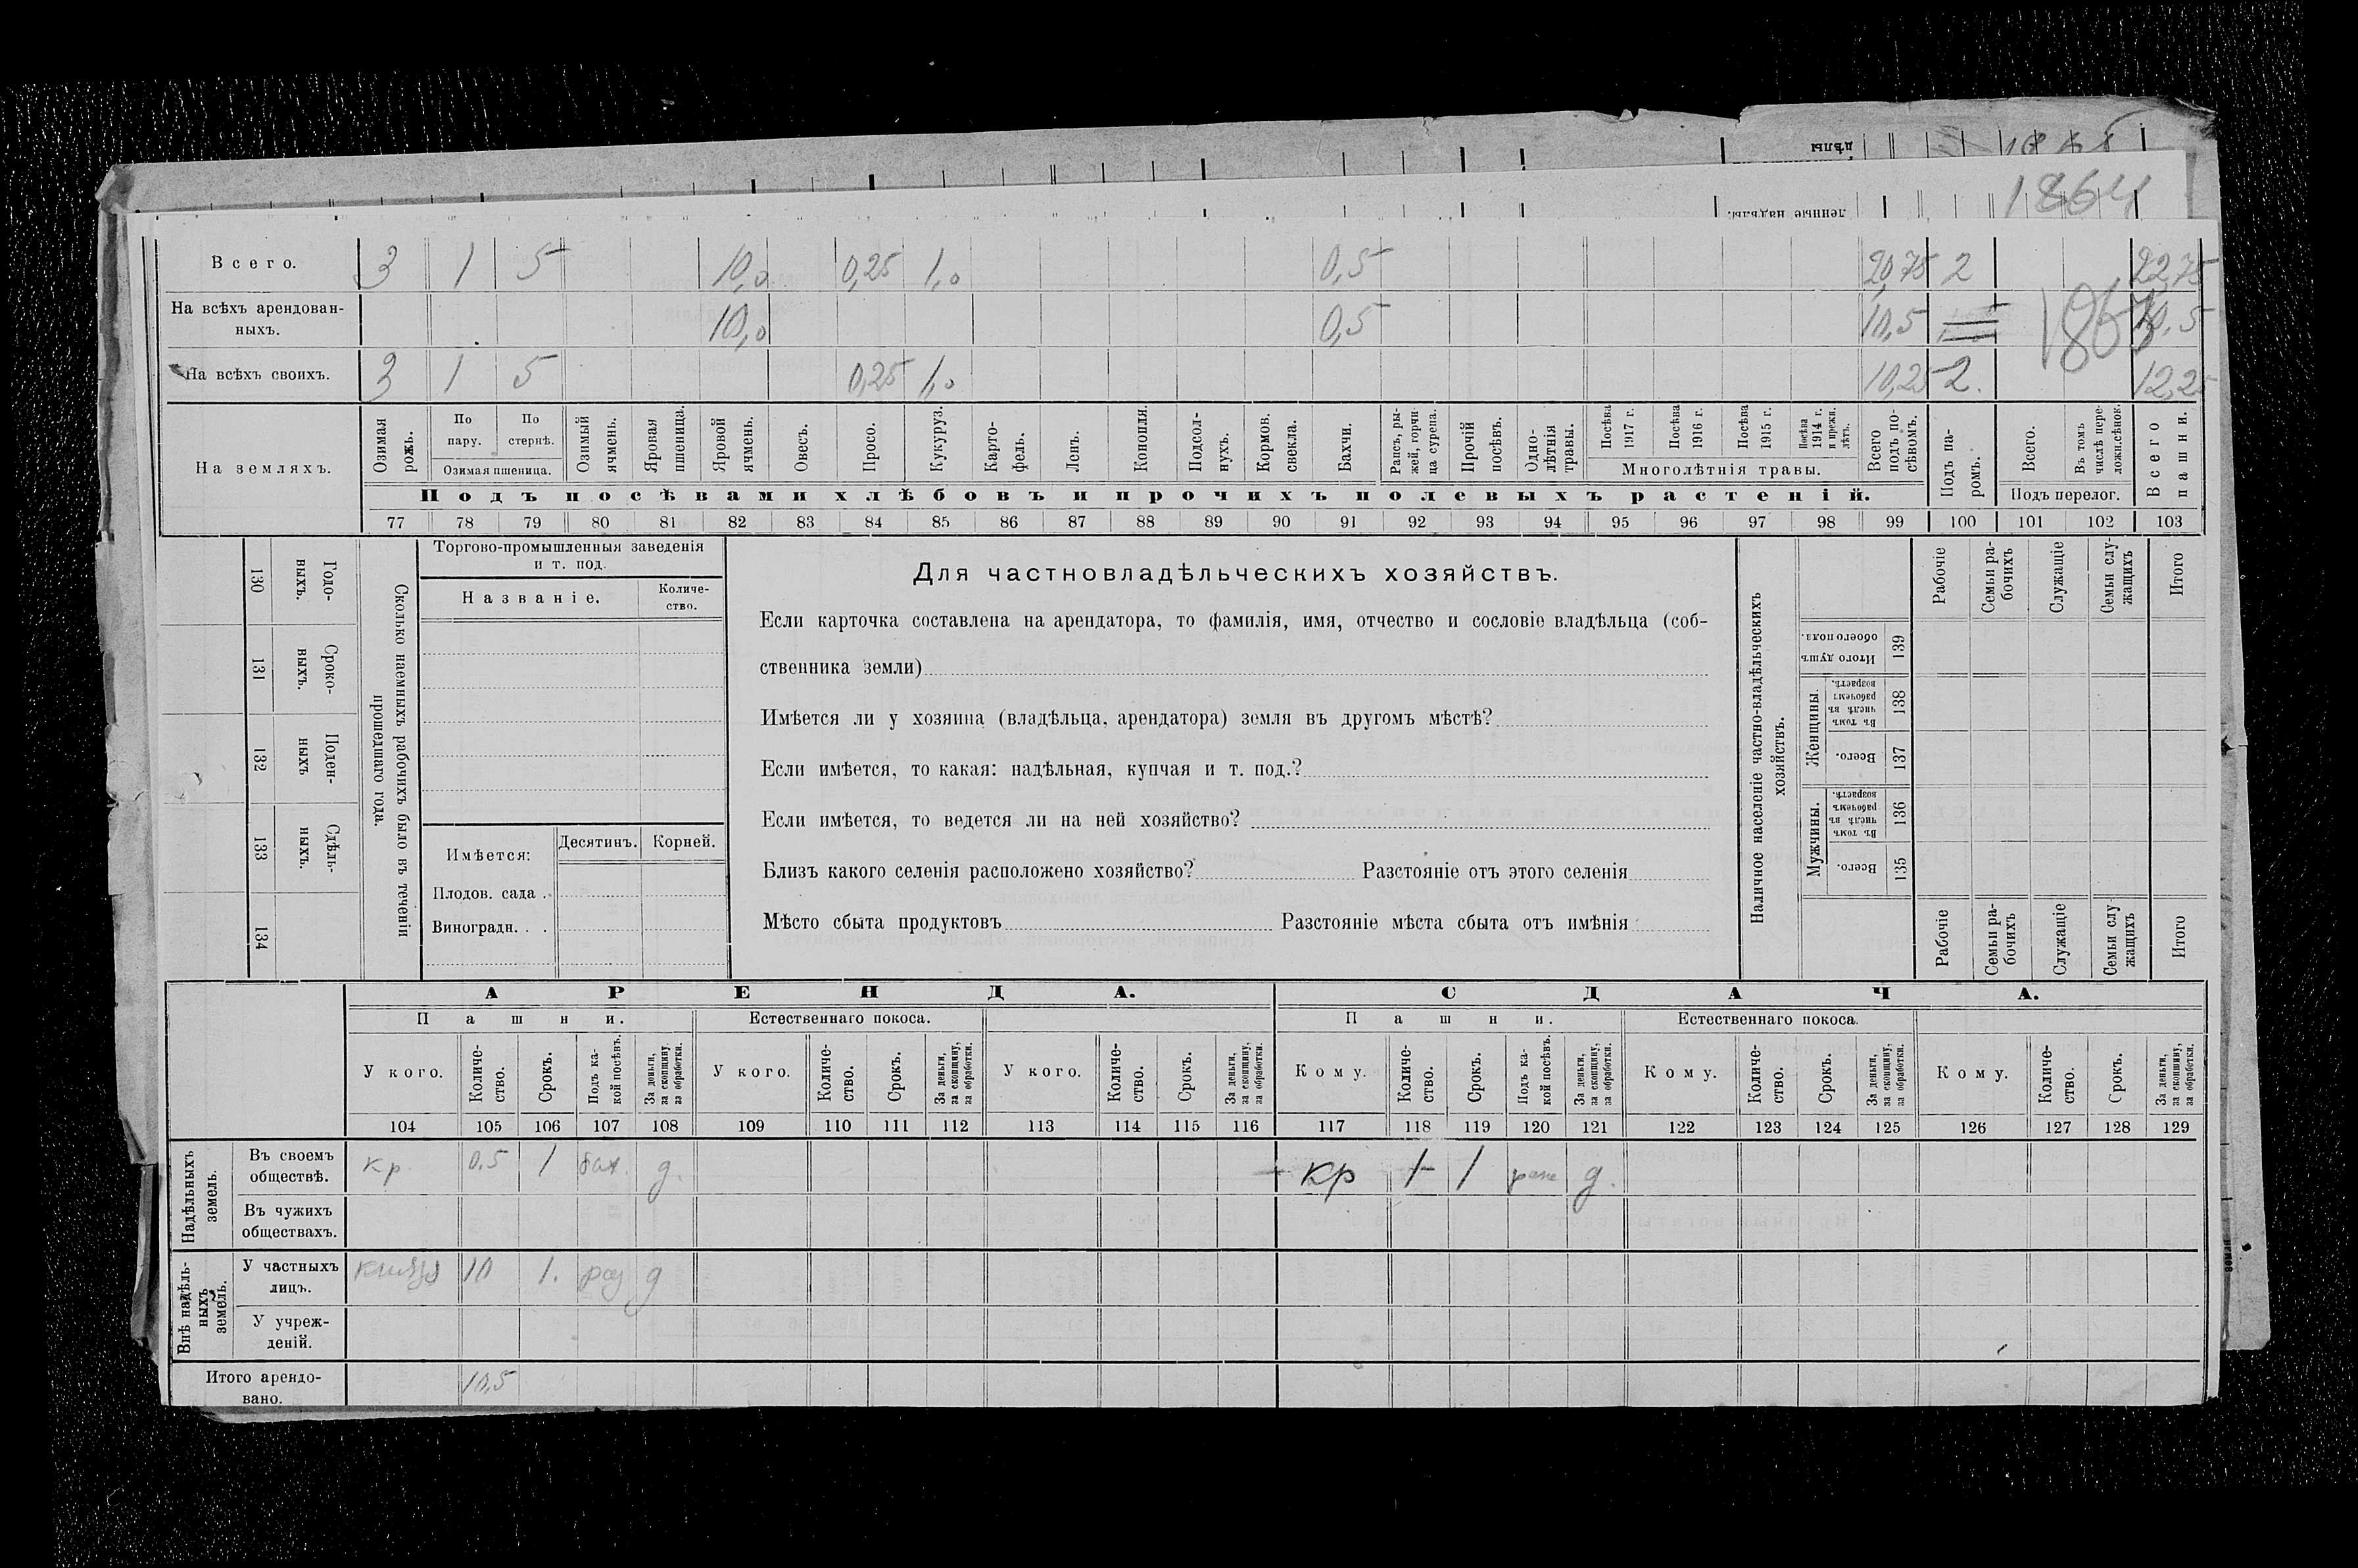 1864
Всего. 3 1 5 10,0 0,25 1,0 0,5 20,75 2 22,75
На всѣхъ арендован-
ныхъ. 10,0 0,5 10,5 10,5
На всѣхъ своихъ. 3 1 5 0,25 1,0 10,25 2. 12,25
На земляхъ.
Озимая рожь.
По пару.
По стернѣ.
Озимая пшеница.
Озимый ячмень.
Яровая пшеница.
Яровой ячмень.
Овесъ.
Просо.
Кукуруз.
Карто-
фель.
Ленъ.
Конопля.
Подсол-
нухъ.
Кормов. свекла.
Бахчи.
Рапсъ, ры-
жей, горчи-
ца сурепа.
Прочій посѣвъ.
Одно-
лѣтнія травы.
Посѣва 1917 г.
Посѣва 1916 г.
Посѣва 1915 г.
Посѣва 1914 г. и прежн. лѣтъ.
Многолѣтнія травы.
Всего подъ по-
сѣвомъ.
Подъ па-
ромъ.
Всего.
Въ томъ числѣ пере-
ложн.сѣнок.
Подъ перелог.
Всего пашни.
Подъ посѣвами хлѣбовъ и прочихъ полевыхъ растеній.
77 78 79 80 81 82 83 84 85 86 87 88 89 90 91 92 93 94 95 96 97 98 99 100 101 102 103
130 Годо-
ныхъ.
131 Сроко-
выхъ.
132 Поден-
ныхъ
133 Сдѣль-
ныхъ.
134
Сколько наемныхъ рабочихъ было въ теченіи
прошедшаго года.
Торгово-промышленныя заведенія
и т. под.
Названіе.
Количе-
ство.
Имѣется: Десятинъ. Корней.
Плодов. сада .
Виноградн. . .
Для частновладѣльческихъ хозяйствъ.
Если карточка составлена на арендатора, то фамилія, имя, отчество и сословіе владѣльца (соб-
ственника земли)
Имѣется ли у хозяина (владѣльца, арендатора) земля въ другомъ мѣстѣ?
Если имѣется, то какая: надѣльная, купчая и т. под.?
Если имѣется, то ведется ли на ней хозяйство?
Близъ какого селенія расположено хозяйство? Разстояніе отъ этого селенія
Мѣсто сбыта продуктовъ Разстояніе мѣста сбыта отъ имѣнія
Наличное населеніе частно-владѣльческихъ
хозяйствъ.
Рабочіе
Семьи ра-
бочихъ
Служащіе
Семьи слу-
жащихъ
Итого
Итого душъ обоего пола. 139
Женщины.
Въ томъ числѣ въ рабочемъ возрастѣ. 138
Всего. 137
Мужчины.
Въ томъ числѣ въ рабочемъ возрастѣ. 136
Всего. 135
Рабочіе
Семьи ра-
бочихъ
Служащіе
Семьи слу-
жащихъ
Итого
АРЕНДА. СДАЧА.
Пашни. Естественнаго покоса. Пашни. Естественнаго покоса.
У кого. Количе-
ство. Срокъ. Подъ ка-
кой посѣвъ. За деньги, за скопщину, за обработки.
У кого. Количе-
ство. Срокъ. За деньги, за скопщину, за обработки.
У кого. Количе-
ство. Срокъ. За деньги, за скопщину, за обработки.
Кому. Количе-
ство. Срокъ. Подъ ка-
кой посѣвъ. За деньги, за скопщину, за обработки.
Кому. Количе-
ство. Срокъ. За деньги, за скопщину, за обработки.
Кому. Количе-
ство. Срокъ. За деньги, за скопщину, за обработки.
104 105 106 107 108 109 110 111 112 113 114 115 116 117 118 119 120 121 122 123 124 125 126 127 128 129
Надѣльныхъ земель.
Въ своемъ
обществѣ. кр. 0.5 1 бах. д. кр 1 1 д.
Въ чужихъ
обществахъ.
Внѣ надѣль-
ныхъ земель.
У частныхъ
лицъ. 10 1. д
У учреж-
деній.
Итого арендо-
вано. 10,5